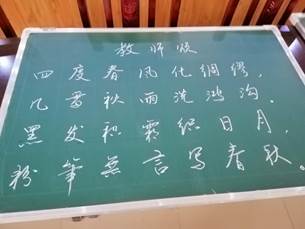 教师颂
四度春风化绸缪，
几番秋雨洗鸿沟。
黑发积霜织日月，
粉笔无言写春秋。